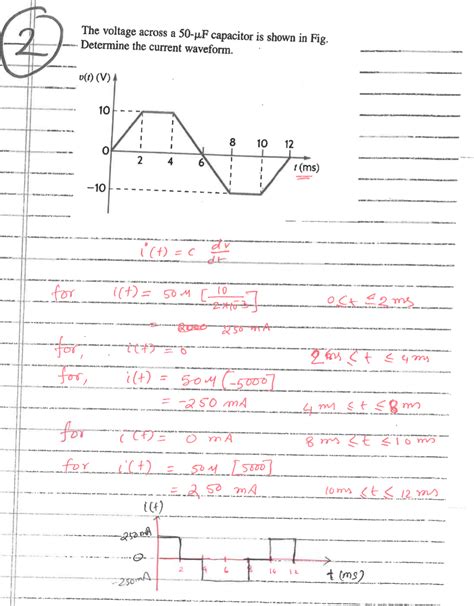 2
The voltage across a 50-μF capacitor is shown in Fig.
Determine the current waveform.
v(t) (V)
10
0
-10
2 4 6 8 10 12
t (ms)
i(t) = c dv/dt
for i(t) = 50 M [10/2×10^-3] 0<t ≤2 ms
= 250 mA
for, i(t) = 0 2 ms ≤ t ≤ 4 ms
for, i(t) = 50 M (-5000]
= -250 mA 4 ms ≤ t ≤ 8 ms
for i(t) = 0 mA 8 ms ≤ t ≤ 10 ms
for i(t) = 50M [5000]
= 250 mA 10 ms ≤ t ≤ 12 ms
i(t)
250mA
0
-250mA
2 4 6 8 10 12
t (ms)